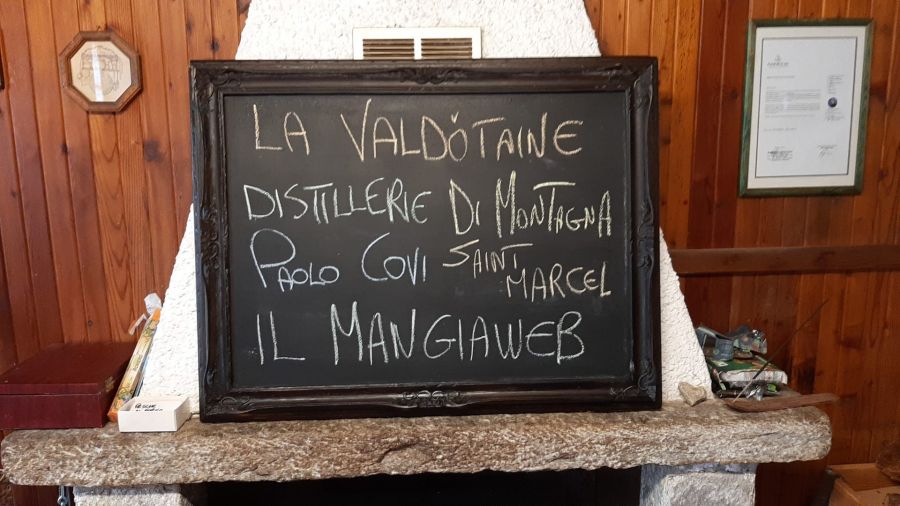 LA VALDÔTAINE
DISTILLERIE DI MONTAGNA
PAOLO COVI SAINT MARCEL
IL MANGIAWEB